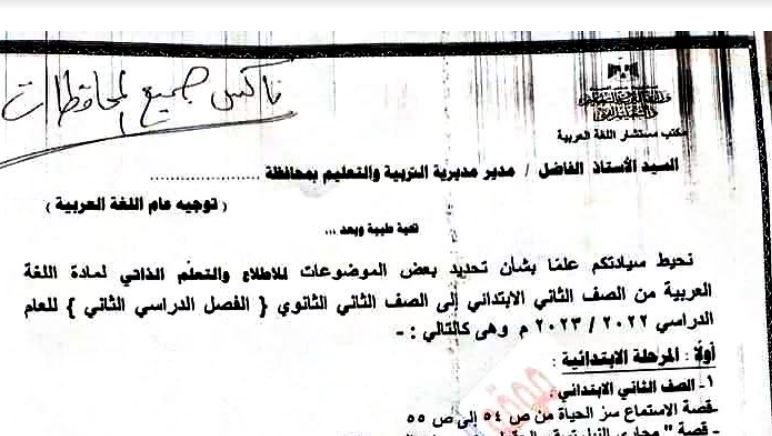 فاكس جميع المحافظات
مكتب مستشار اللغة العربية
السيد الأستاذ الفاضل / مدير مديرية التربية والتعليم بمحافظة ......................
( توجيه عام اللغة العربية )
تحية طيبة وبعد ...
نحيط سيادتكم علمًا بشأن تحديد بعض الموضوعات للاطلاع والتعلم الذاتي لمادة اللغة
العربية من الصف الثاني الابتدائي إلى الصف الثاني الثانوي { الفصل الدراسي الثاني } للعام
الدراسي ٢٠٢٢ / ٢٠٢٣ م وهى كالتالي : -
أولًا : المرحلة الابتدائية :
١- الصف الثاني الابتدائي :
-قصة الاستماع سر الحياة من ص ٥٤ إلى ص ٥٥
- قصة "